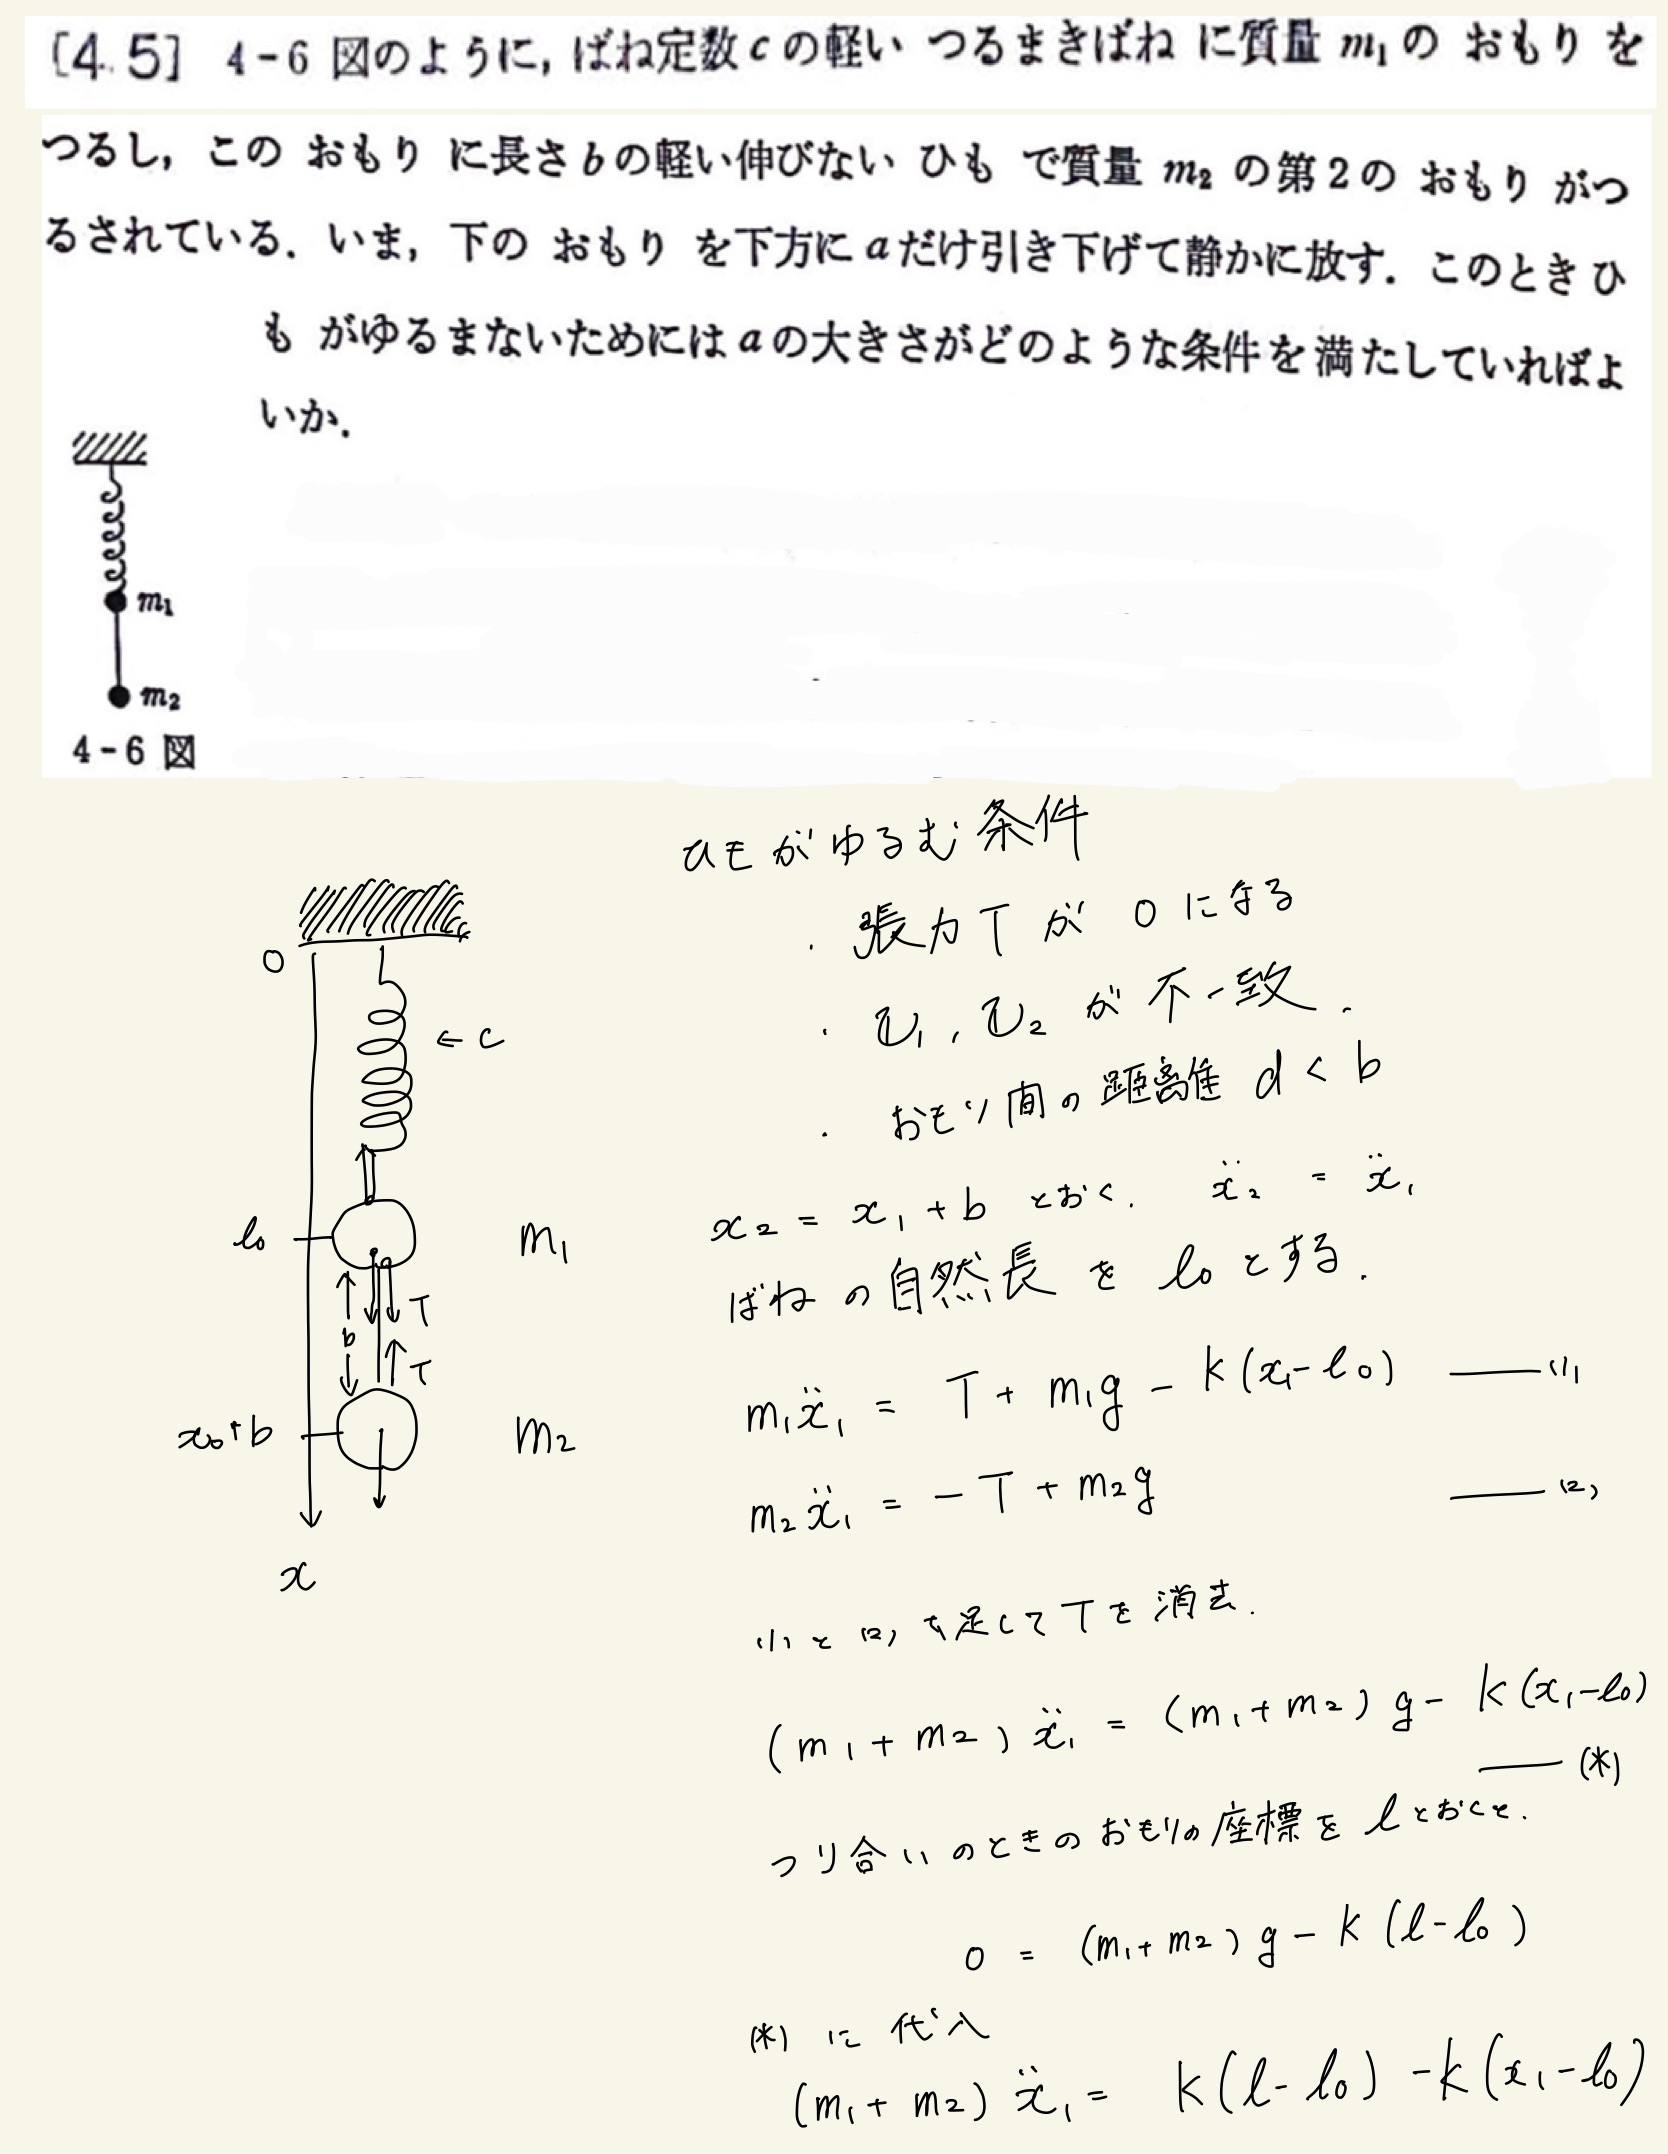 [4.5] 4-6 図のように, ばね定数 c の軽い つるまきばね に質量 m₁ の おもり を
つるし, この おもり に長さ b の軽い伸びない ひも で質量 m₂ の第2の おもり がつ
るされている. いま, 下の おもり を下方に a だけ引き下げて静かに放す. このとき ひ
も がゆるまないためには a の大きさがどのような条件を満たしていればよ
いか.
m₁
m₂
4-6 図
ひもがゆるむ条件
・ 張力 T が 0 になる
・ v₁, v₂ が不一致.
・ おもり間の距離 d < b
0
← c
l₀
m₁
T
b
T
x₀+b
m₂
x
x₂ = x₁ + b とおく. ẍ₂ = ẍ₁
ばねの自然長を l₀ とする.
m₁ẍ₁ = T + m₁g - k(x₁-l₀) —— (1)
m₂ẍ₁ = - T + m₂g —— (2)
(1) と (2) を足して T を消去.
(m₁ + m₂) ẍ₁ = (m₁ + m₂) g - k(x₁-l₀)
—— (*)
つり合いのときのおもりの座標を l とおくと.
0 = (m₁ + m₂) g - k (l-l₀)
(*) に代入
(m₁ + m₂) ẍ₁ = k(l-l₀) - k(x₁-l₀)